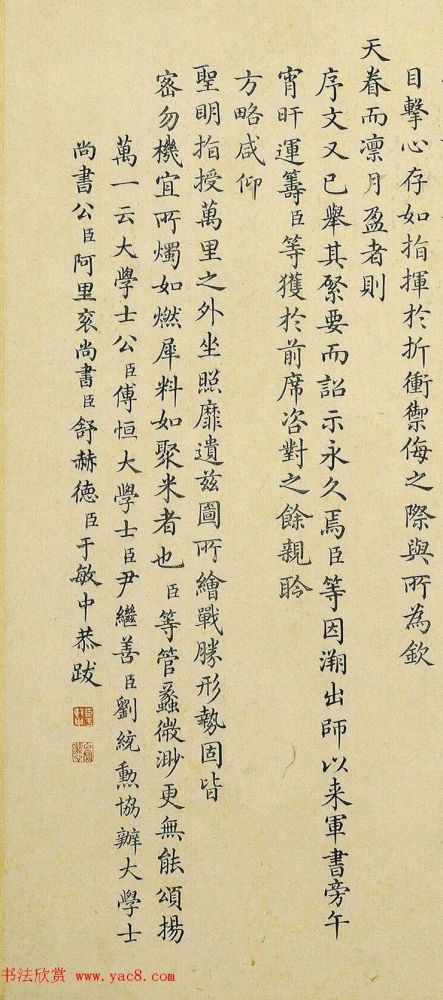 目擊心存如指揮於折衝禦侮之際與所為欽
天眷而凛月盈者則
序文又已舉其綮要而詔示永久焉臣等因溯出師以来軍書旁午
宵旰運籌臣等獲於前席咨對之餘親聆
方略咸仰
聖明指授萬里之外坐照靡遺兹圖所繪戰勝形勢固皆
密勿機宜所燭如燃犀料如聚米者也臣等管蠡微渺更無能頌揚
萬一云大學士公臣傅恒大學士臣尹繼善臣劉統勳協辦大學士
尚書公臣阿里衮尚書臣舒赫德臣于敏中恭跋
书法欣赏 www.yac8.com